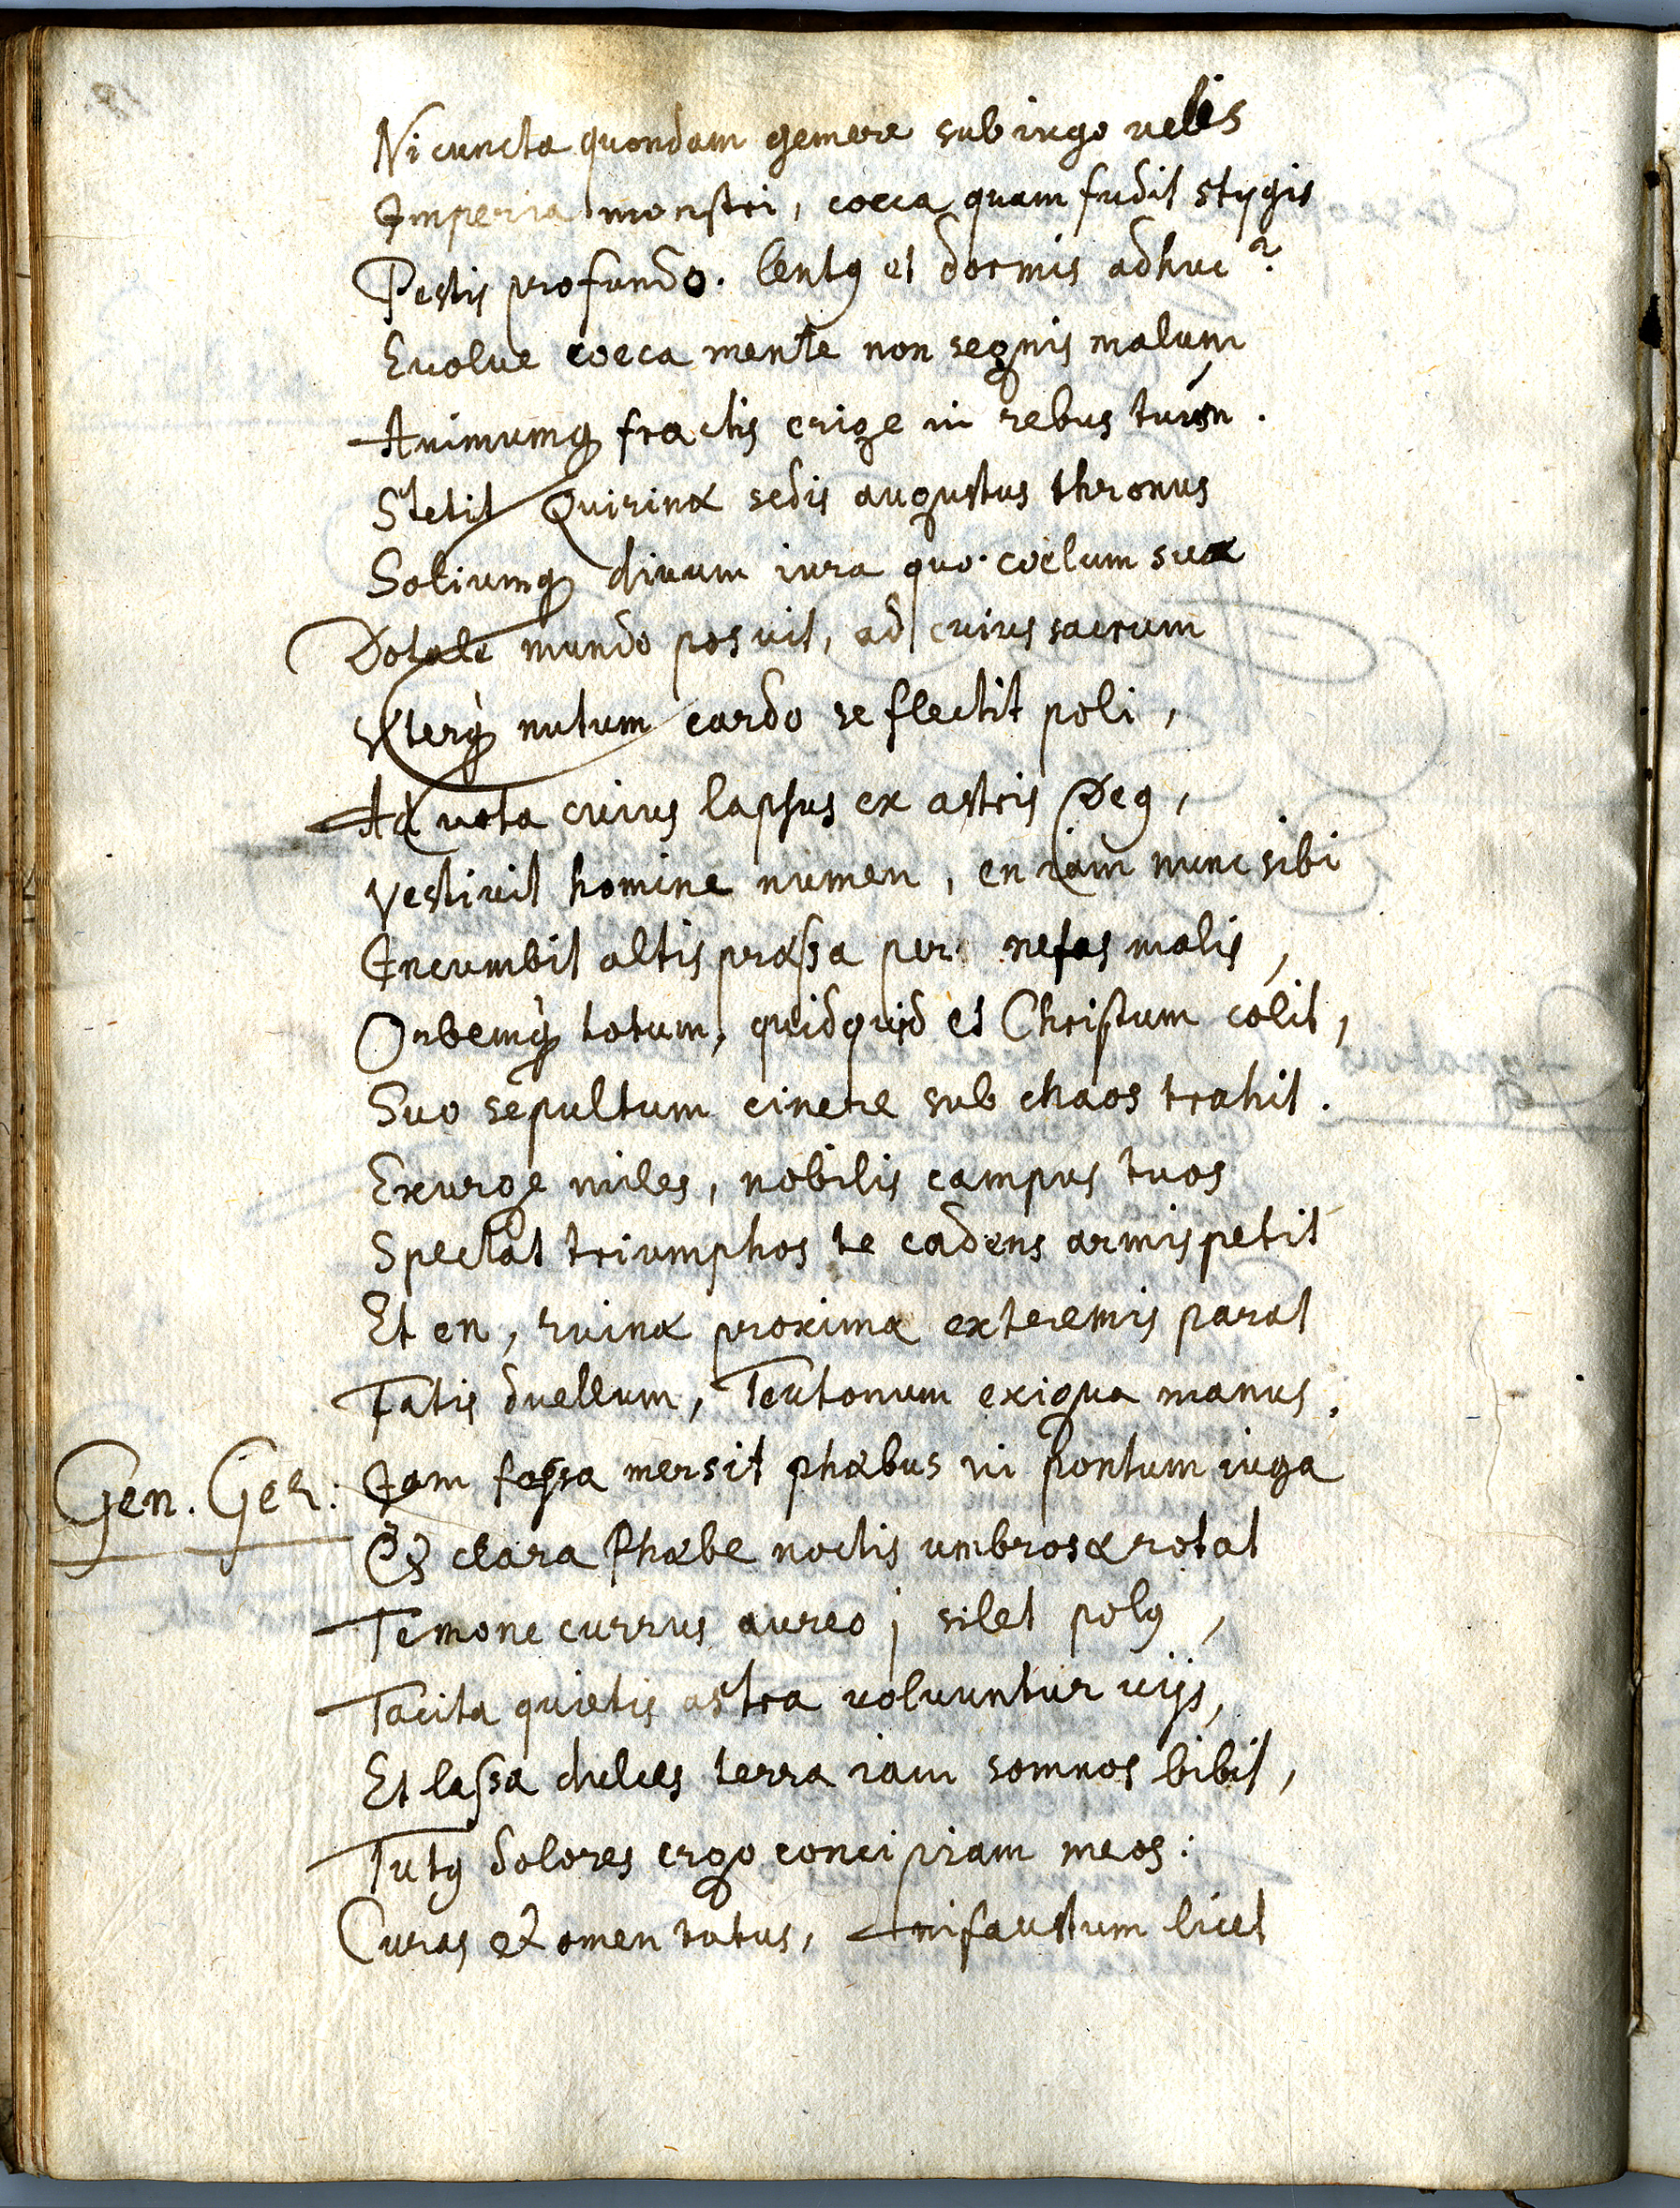 Ni cuncta quondam gemere sub iugo uelis
Imperia monstri, coeca quam fudit stygis
Pestis profundo. lentꝯ et dormis adhuc?
Euolue coeca mente non segnis malum
Animumq; fractis erige in rebus tuum.
Stetit Quirinæ sedis augustus thronus
Soliumq; diuum iura quo coelum suæ
Dotale mundo posuit, ad cuius sacrum
Vterq; nutum cardo se flectit poli,
Ad uota cuius lapsus ex astris Deꝯ,
Vestiuit homine numen, en iam nunc sibi
Incumbit altis præssa per nefas malis,
Orbemq; totum, quidquid et Christum colit,
Suo sepultum cinere sub chaos trahit.
Exurge miles, nobilis campus tuos
Spectat triumphos te cadens armis petit
Et en, ruinæ proxima exteremis parat
Fatis duellum, Teutonum exigua manus.
Gen. Ger: Iam fessa mersit phæbus in pontum iuga
Et clara Phæbe noctis umbrosæ rotat
Temone currus aureo; silet polꝯ,
Tacita quietis astra voluuntur uijs,
Et lassa dulces terra iam somnos bibit,
Tutꝯ dolores ergo concipiam meos:
Curas et omen tutus, infaustum licet